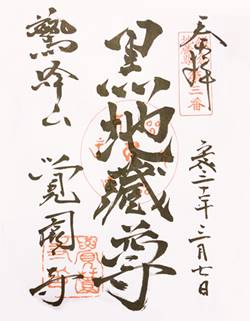 奉拝
三番
年三月七日
黒地蔵尊
鷲峰山
覚園寺